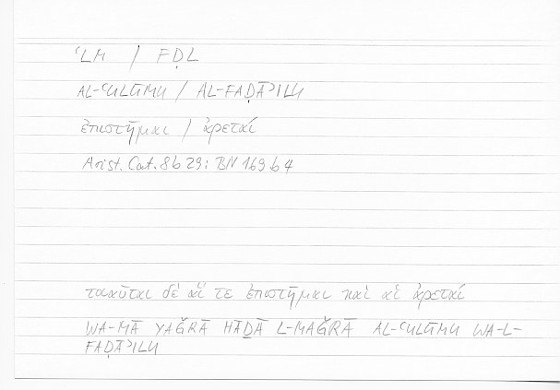 ʿLM / FḌL
AL-ʿULŪMU / AL-FAḌĀʾILU
ἐπιστῆμαι / ἀρεταί
Arist. Cat. 8b29: BN 169b4
τοιαῦται δὲ αἵ τε ἐπιστῆμαι καὶ αἱ ἀρεταί
WA-MĀ YAǦRĀ HĀḎĀ L-MAǦRĀ AL-ʿULŪMU WA-L-
FAḌĀʾILU